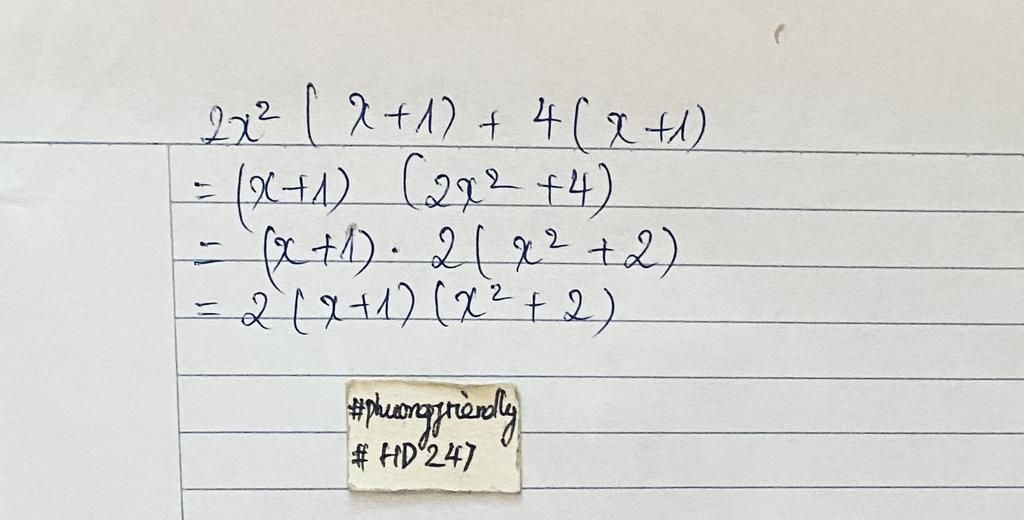 2x² (x+1) + 4(x+1)
= (x+1) (2x² +4)
= (x+1) · 2(x² +2)
= 2(x+1)(x² + 2)
#phuongfriendly
# HD247